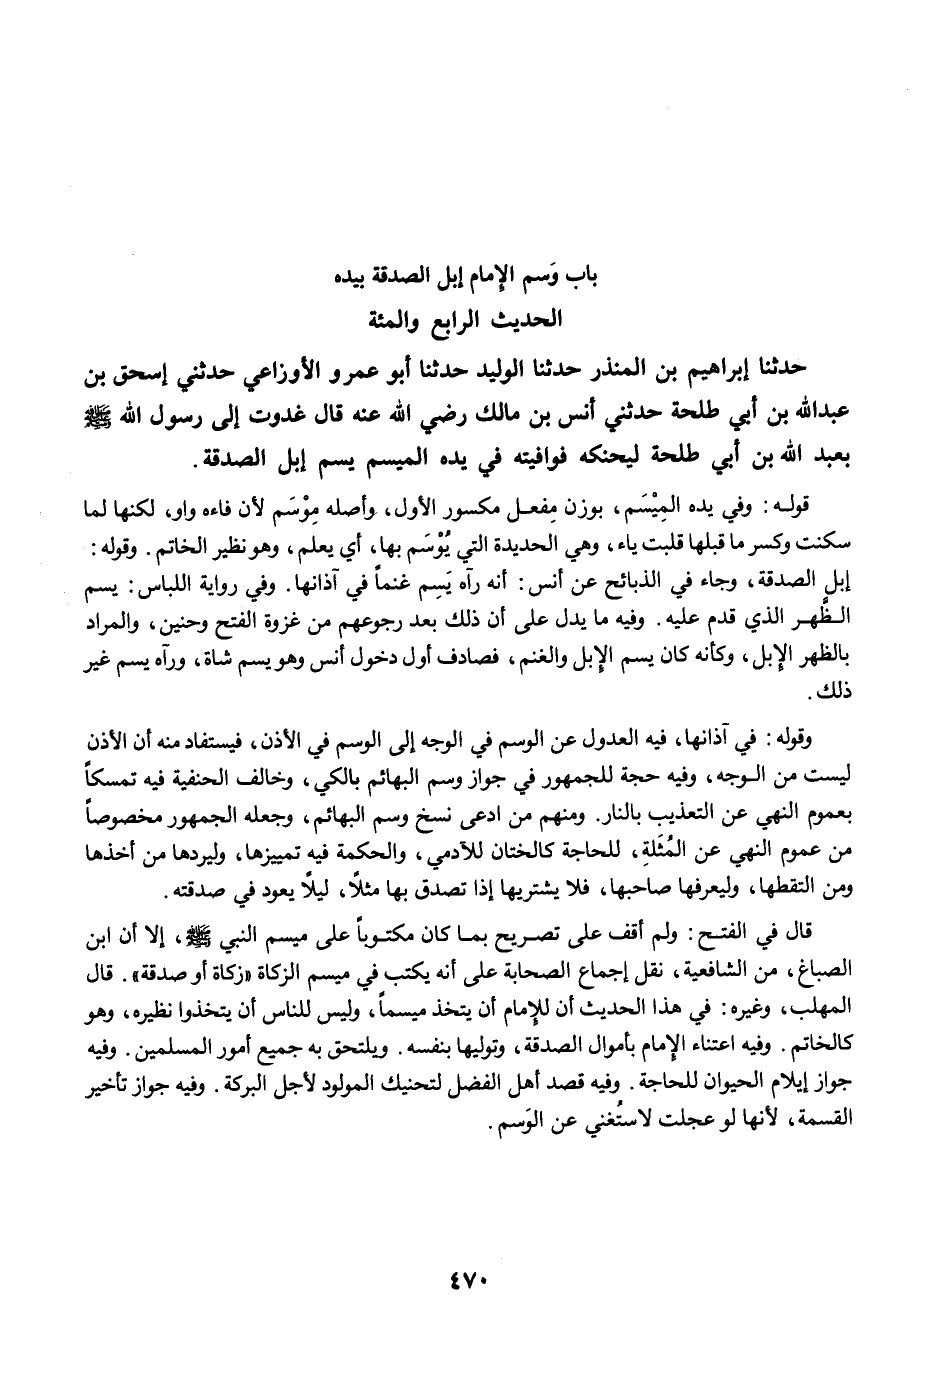 باب وَسم الإمام إبل الصدقة بيده
الحديث الرابع والمئة
حدثنا إبراهيم بن المنذر حدثنا الوليد حدثنا أبو عمرو الأوزاعي حدثني إسحق بن
عبدالله بن أبي طلحة حدثني أنس بن مالك رضي الله عنه قال غدوت إلى رسول الله ﷺ
بعبد الله بن أبي طلحة ليحنكه فوافيته في يده الميسم يسم إبل الصدقة.
قوله: وفي يده المِيْسَم، بوزن مِفعل مكسور الأول، وأصله مِوْسَم لأن فاءه واو، لكنها لما
سكنت وكسر ما قبلها قلبت ياء، وهي الحديدة التي يُوْسَم بها، أي يعلم، وهو نظير الخاتم. وقوله:
إبل الصدقة، وجاء في الذبائح عن أنس: أنه رآه يَسِم غنماً في آذانها. وفي رواية اللباس: يسم
الظَّهر الذي قدم عليه. وفيه ما يدل على أن ذلك بعد رجوعهم من غزوة الفتح وحنين، والمراد
بالظهر الإبل، وكأنه كان يسم الإبل والغنم، فصادف أول دخول أنس وهو يسم شاة، ورآه يسم غير
ذلك.
وقوله: في آذانها، فيه العدول عن الوسم في الوجه إلى الوسم في الأذن، فيستفاد منه أن الأذن
ليست من الوجه، وفيه حجة للجمهور في جواز وسم البهائم بالكي، وخالف الحنفية فيه تمسكاً
بعموم النهي عن التعذيب بالنار. ومنهم من ادعى نسخ وسم البهائم، وجعله الجمهور مخصوصاً
من عموم النهي عن المُثَلةِ، للحاجة كالختان للآدمي، والحكمة فيه تمييزها، وليردها من أخذها
ومن التقطها، وليعرفها صاحبها، فلا يشتريها إذا تصدق بها مثلًا، ليلًا يعود في صدقته.
قال في الفتح: ولم أقف على تصريح بما كان مكتوباً على ميسم النبي ﷺ، إلا أن ابن
الصباغ، من الشافعية، نقل إجماع الصحابة على أنه يكتب في ميسم الزكاة «زكاة أو صدقة». قال
المهلب، وغيره: في هذا الحديث أن للإمام أن يتخذ ميسماً، وليس للناس أن يتخذوا نظيره، وهو
كالخاتم. وفيه اعتناء الإمام بأموال الصدقة، وتوليها بنفسه. ويلتحق به جميع أمور المسلمين. وفيه
جواز إيلام الحيوان للحاجة. وفيه قصد أهل الفضل لتحنيك المولود لأجل البركة. وفيه جواز تأخير
القسمة، لأنها لو عجلت لاستُغني عن الوَسم.
٤٧٠